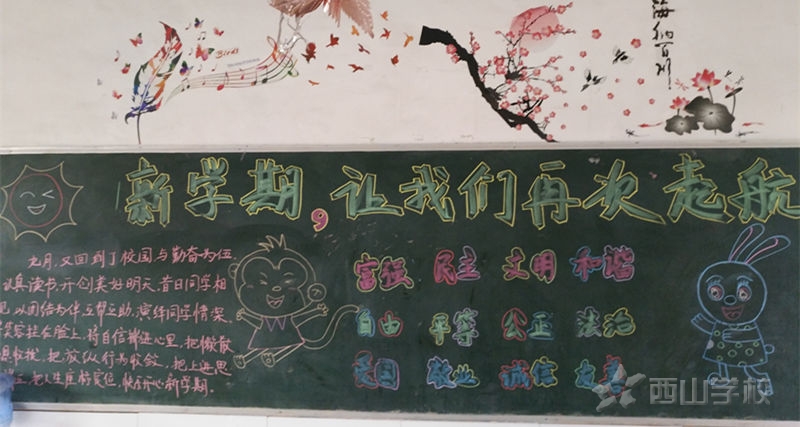 Birds
海纳百川
新学期,让我们再次起航
九月,又回到了校园与勤奋为伍,
认真读书,开创美好明天,昔日同学相
见,以团结为伴,互帮互助,演绎同学情深,
笑容挂在脸上,将自信绑进心里,把懒散
收敛,把上进思
快乐开心新学期。
富强 民主 文明 和谐
自由 平等 公正 法治
爱国 敬业 诚信 友善
西山学校